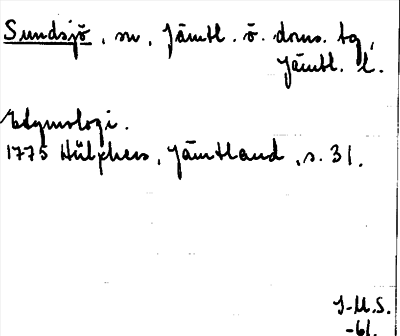 Sundsjö, sn, Jämtl. ö. doms. tg,
Jämtl. l.
Etymologi.
1775 Hülphers, Jämtland, s. 31.
J-M.S.
-61.